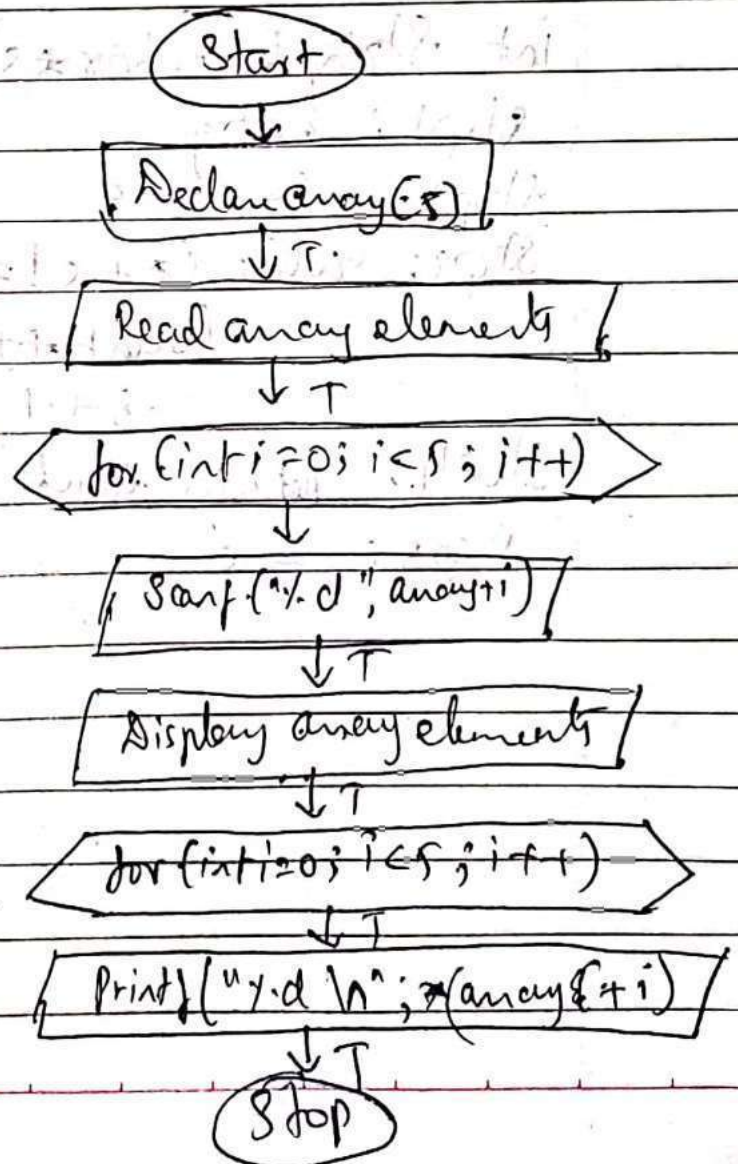 Start
Declare array(5)
T
Read array elements
T
for (int i=0; i<5; i++)
Scanf("%d", array+i)
T
Display array elements
T
for (int i=0; i<5; i++)
T
Printf("%d \n"; *(array + i)
T
Stop